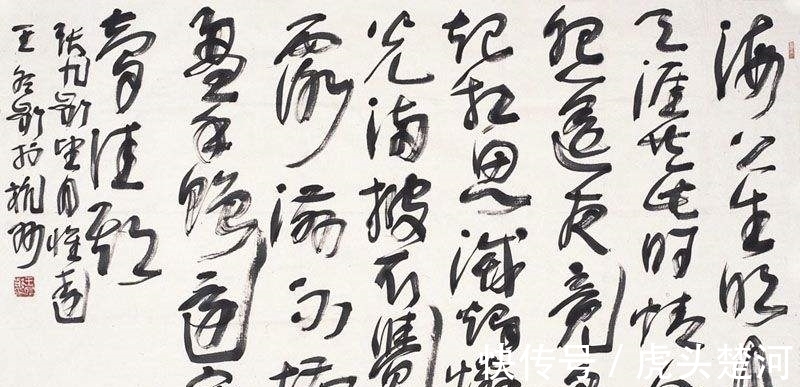 海上生明月
天涯共此时情
怨遥夜竟
起相思灭烛怜
光满披衣觉
露滋不堪
盈手赠还寝
梦佳期
张九龄望月怀远
王冬龄于杭州
快传号 / 虎头楚河